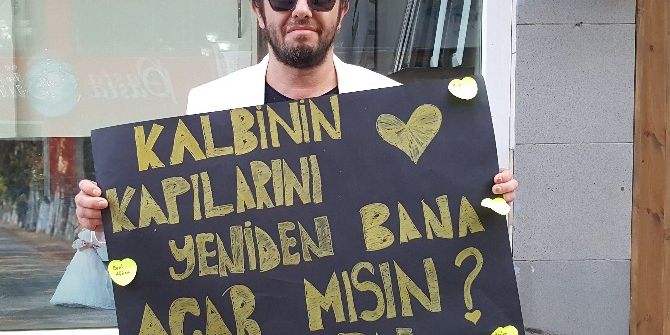 Pasta
KALBİNİN
KAPILARINI
YENİDEN BANA
AÇAR MISIN ?